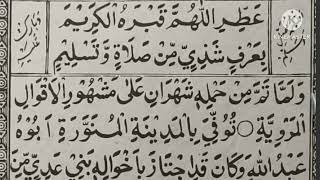 عَطِّرِ اللّٰهُمَّ قَبْرَهُ الْكَرِيْمَ
بِعَرْفٍ شَذِيٍّ مِّنْ صَلَاةٍ وَّتَسْلِيْمٍ
وَلَمَّا تَمَّ مِنْ حَمْلِهِ شَهْرَانِ عَلٰى مَشْهُوْرِ الْاَقْوَالِ
الْمَرْوِيَّةِ ۝ تُوُفِّيَ بِالْمَدِيْنَةِ الْمُنَوَّرَةِ اَبُوْهُ
عَبْدُ اللّٰهِ وَكَانَ قَدِ اجْتَازَ بِاَخْوَالِهِ بَنِيْ عَدِيٍّ مِّنَ